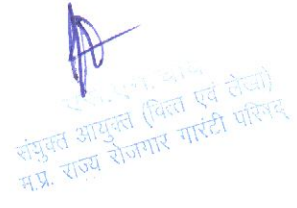 संयुक्त आयुक्त (वित्त एवं लेखा)
म.प्र. राज्य रोजगार गारंटी परिषद्